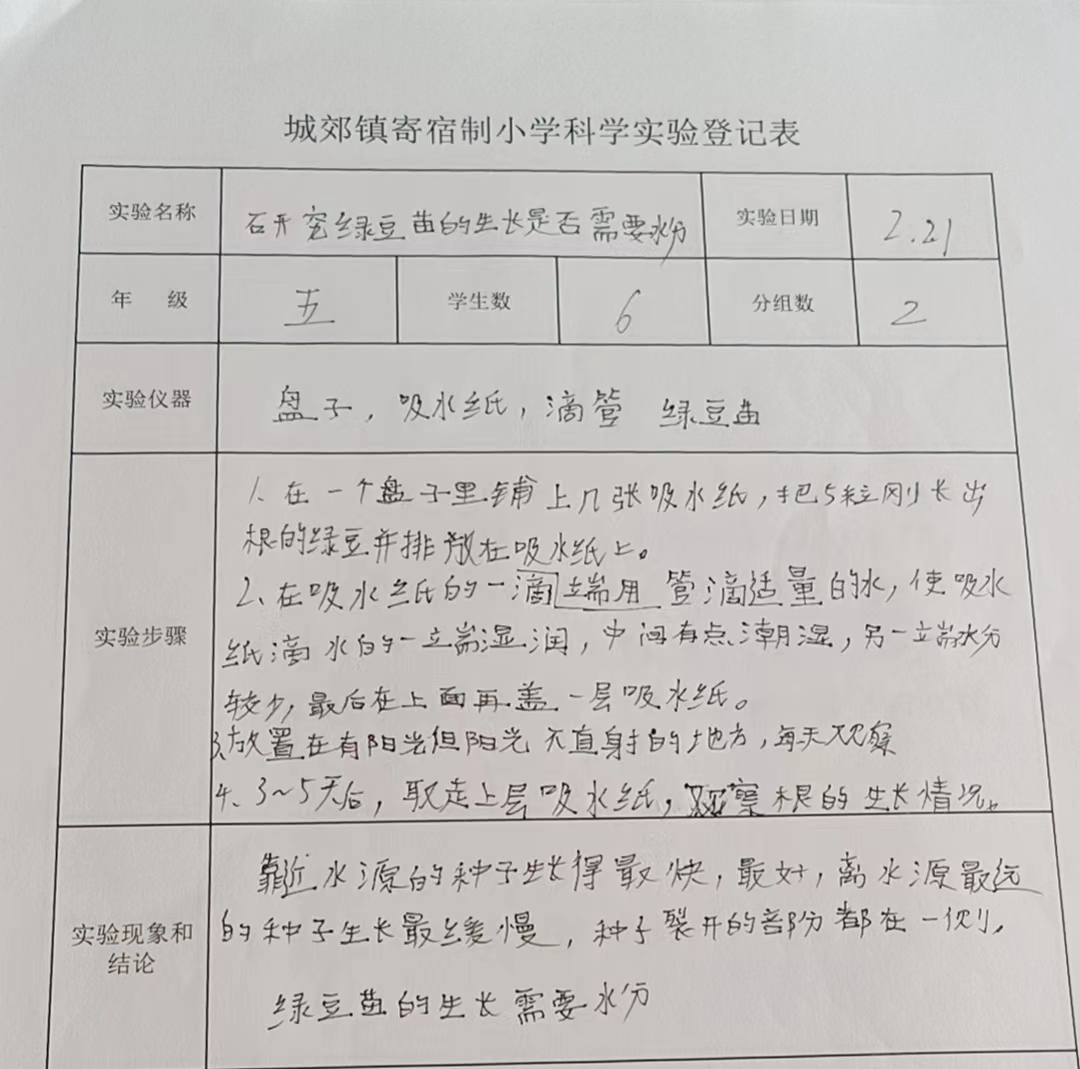 城郊镇寄宿制小学科学实验登记表
实验名称 研究绿豆苗的生长是否需要水分 实验日期 2.21
年 级 五 学生数 6 分组数 2
实验仪器 盘子，吸水纸，滴管 绿豆苗
实验步骤
1、在一个盘子里铺上几张吸水纸，把5粒刚长出
根的绿豆并排放在吸水纸上。
2、在吸水纸的一滴端用管滴适量的水，使吸水
纸滴水的一端湿润，中间有点潮湿，另一端水分
较少，最后在上面再盖一层吸水纸。
3、放置在有阳光但阳光不直射的地方，每天观察
4、3~5天后，取走上层吸水纸，观察根的生长情况。
实验现象和
结论
靠近水源的种子生长得最快，最好，离水源最远
的种子生长最缓慢，种子裂开的部份都在一侧，
绿豆苗的生长需要水分